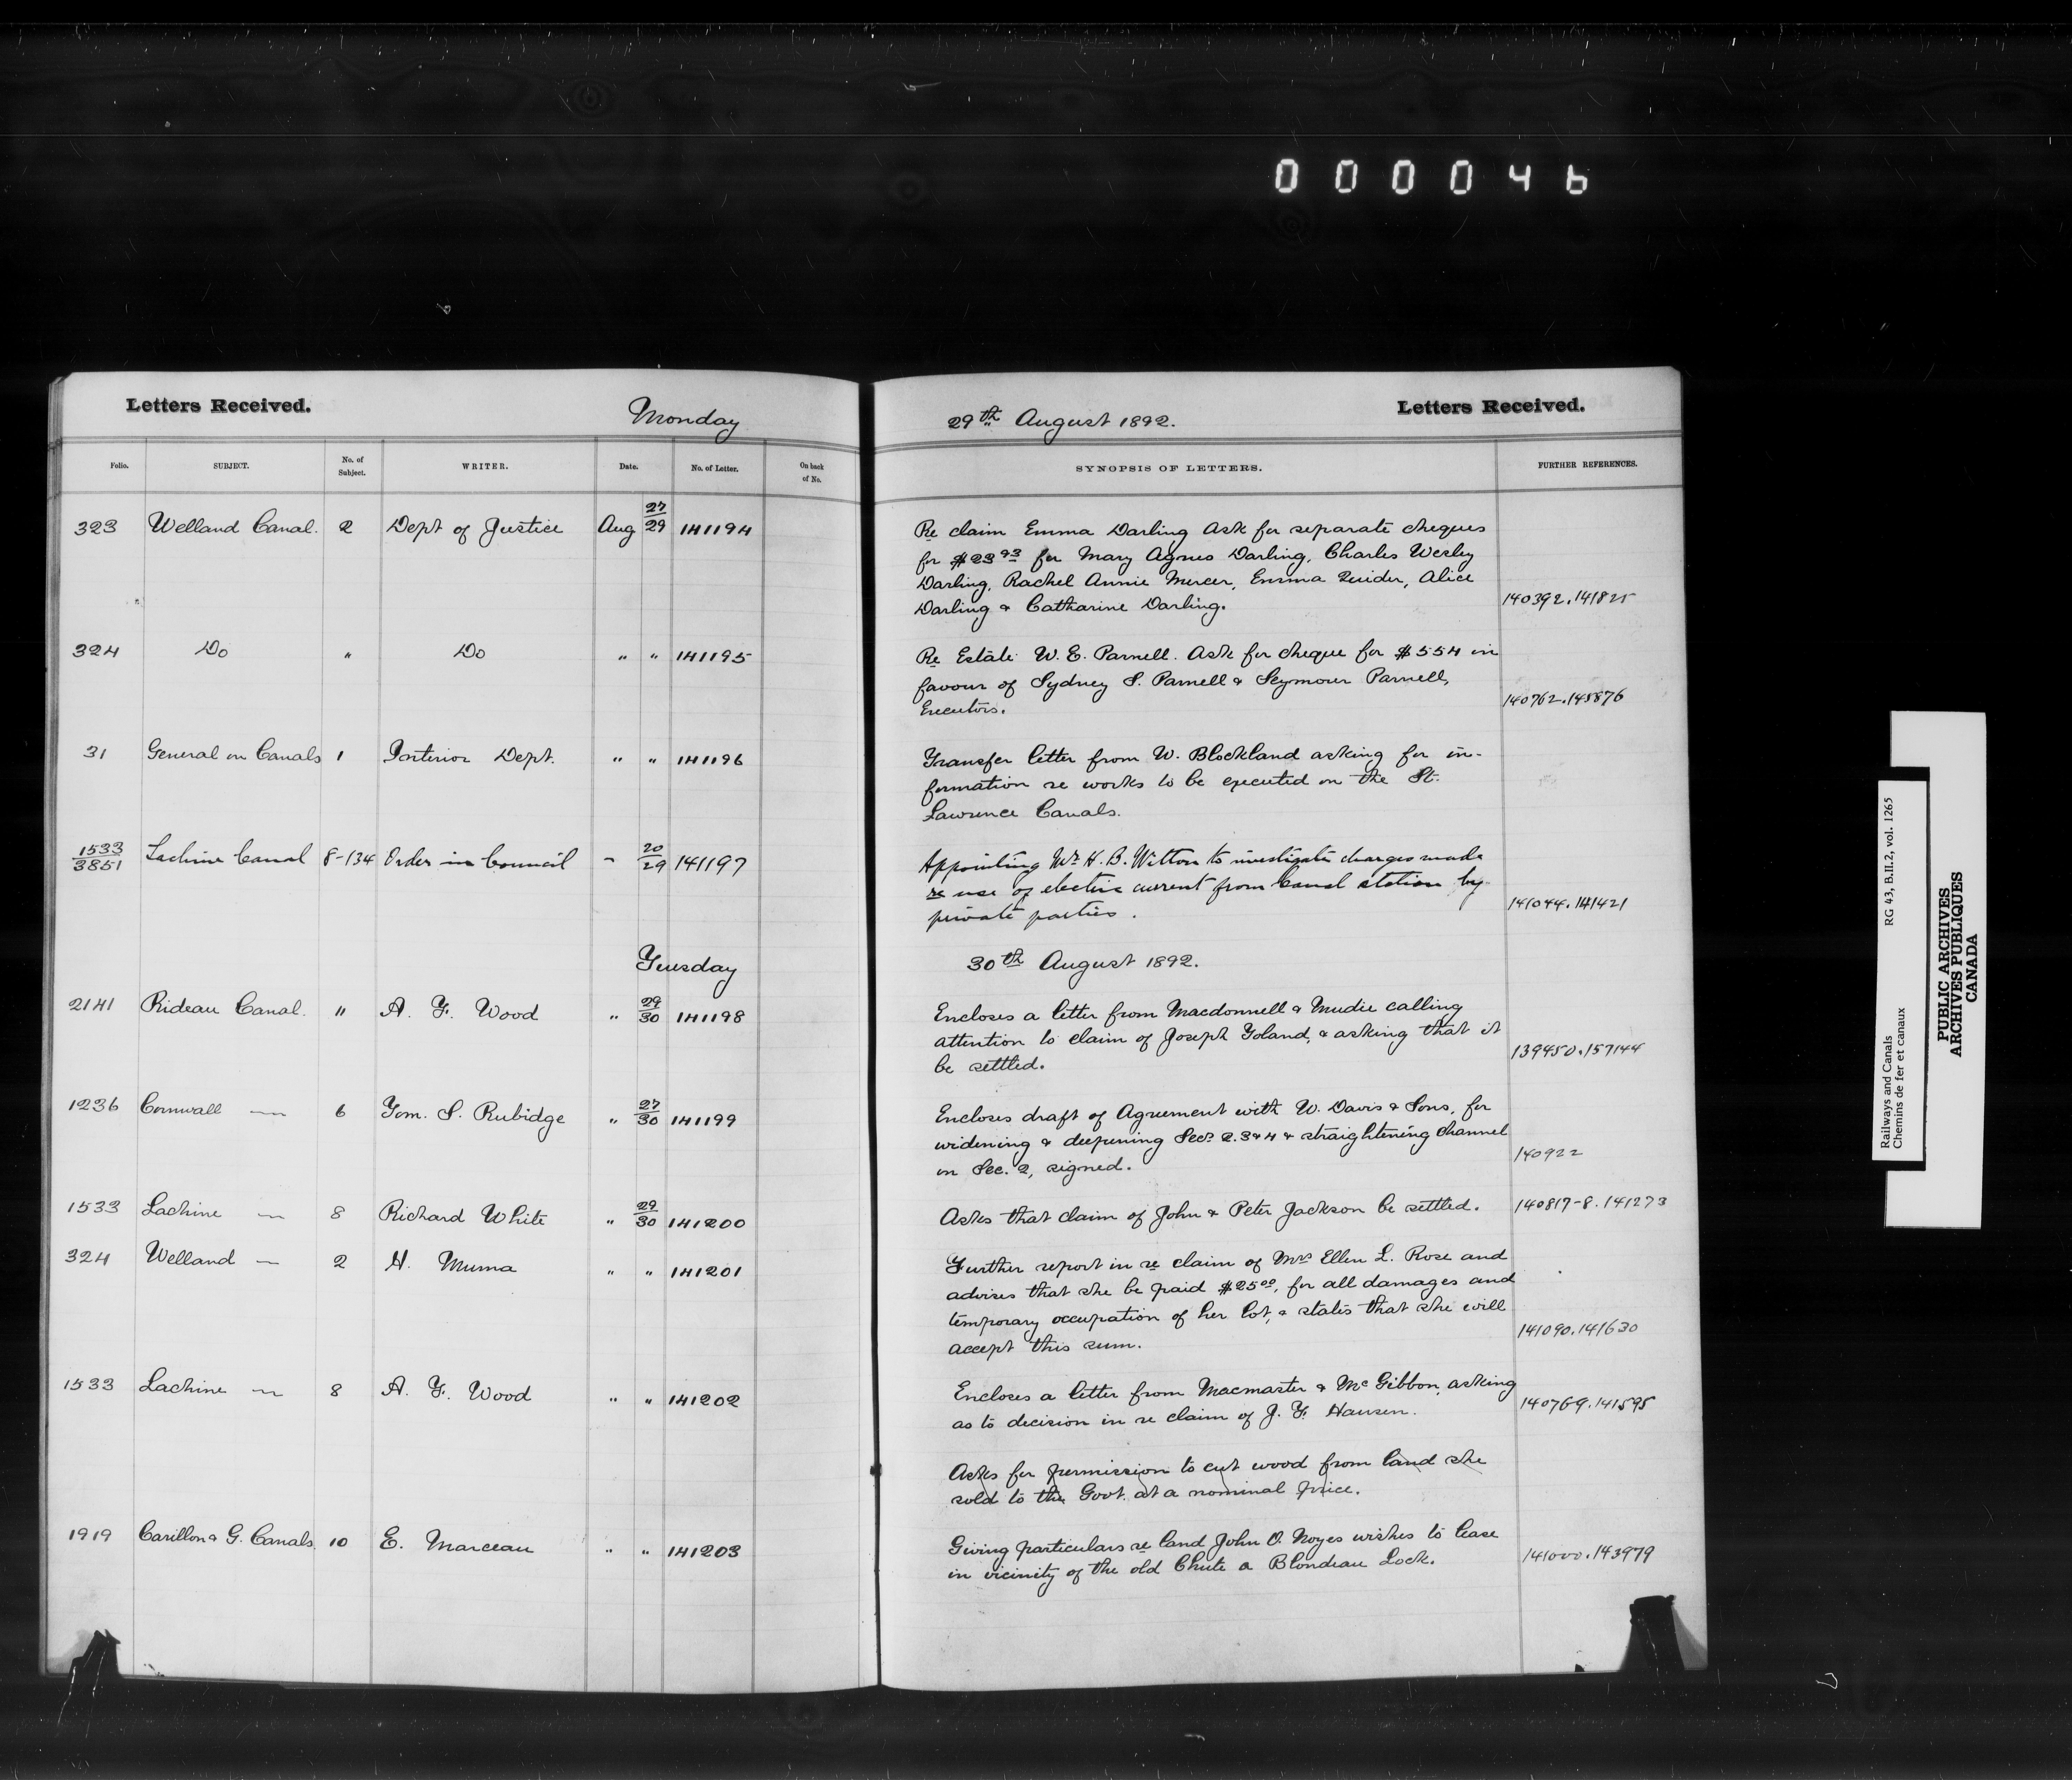 000046
Letters Received.
Monday
29th August 1892.
Letters Received.
Folio. SUBJECT. No. of Subject. WRITER. Date. No. of Letter. On back of No. SYNOPSIS OF LETTERS. FURTHER REFERENCES.
323 Welland Canal. 2 Dept of Justice Aug 27/29 141194
Re claim Emma Darling Ask for separate cheques
for $23.93 for Mary Agnes Darling, Charles Wesley
Darling, Rachel Annie Mercer, Emma Quider, Alice
Darling & Catharine Darling.
140392.141825
324 Do " Do " " 141195
Re Estate W. E. Parnell. Ask for cheque for $554 in
favour of Sydney S. Parnell & Seymour Parnell,
Executors.
140762.145876
31 General on Canals 1 Interior Dept. " " 141196
Transfer letter from W. Blockland asking for in-
formation re works to be executed on the St.
Lawrence Canals.
1533/3851 Lachine Canal 8-134 Order in Council " 20/29 141197
Appointing Mr. H. B. Witton to investigate charges made
re use of electric current from Canal station by
private parties.
141044.141421
Tuesday
30th August 1892.
2141 Rideau Canal. 11 A. F. Wood " 29/30 141198
Encloses a letter from Macdonnell & Mudie calling
attention to claim of Joseph Toland, & asking that it
be settled.
139450.157144
1236 Cornwall — 6 Tom. S. Rubidge " 27/30 141199
Encloses draft of Agreement with W. Davis & Sons, for
widening & deepening Secs. 2.3&4 & straightening channel
on Sec. 2, signed.
140922
1533 Lachine — 8 Richard White " 29/30 141200
Asks that claim of John & Peter Jackson be settled.
140817-8.141273
324 Welland — 2 H. Muma " " 141201
Further report in re claim of Mrs Ellen L. Rose and
advises that she be paid $25.00, for all damages and
temporary occupation of her lot, & states that she will
accept this sum.
141090.141630
1533 Lachine — 8 A. F. Wood " " 141202
Encloses a letter from Macmaster & McGibbon, asking
as to decision in re claim of J. F. Hausen.
140769.141595
Asks for permission to cut wood from land she
sold to the Govt. at a nominal price.
1919 Carillon & G. Canals 10 E. Marceau " " 141203
Giving particulars re land John O. Noyes wishes to lease
in vicinity of the old Chute a Blondeau Lock.
141000.143979
Railways and Canals RG 43, B.II.2, vol. 1265
Chemins de fer et canaux
PUBLIC ARCHIVES
ARCHIVES PUBLIQUES
CANADA